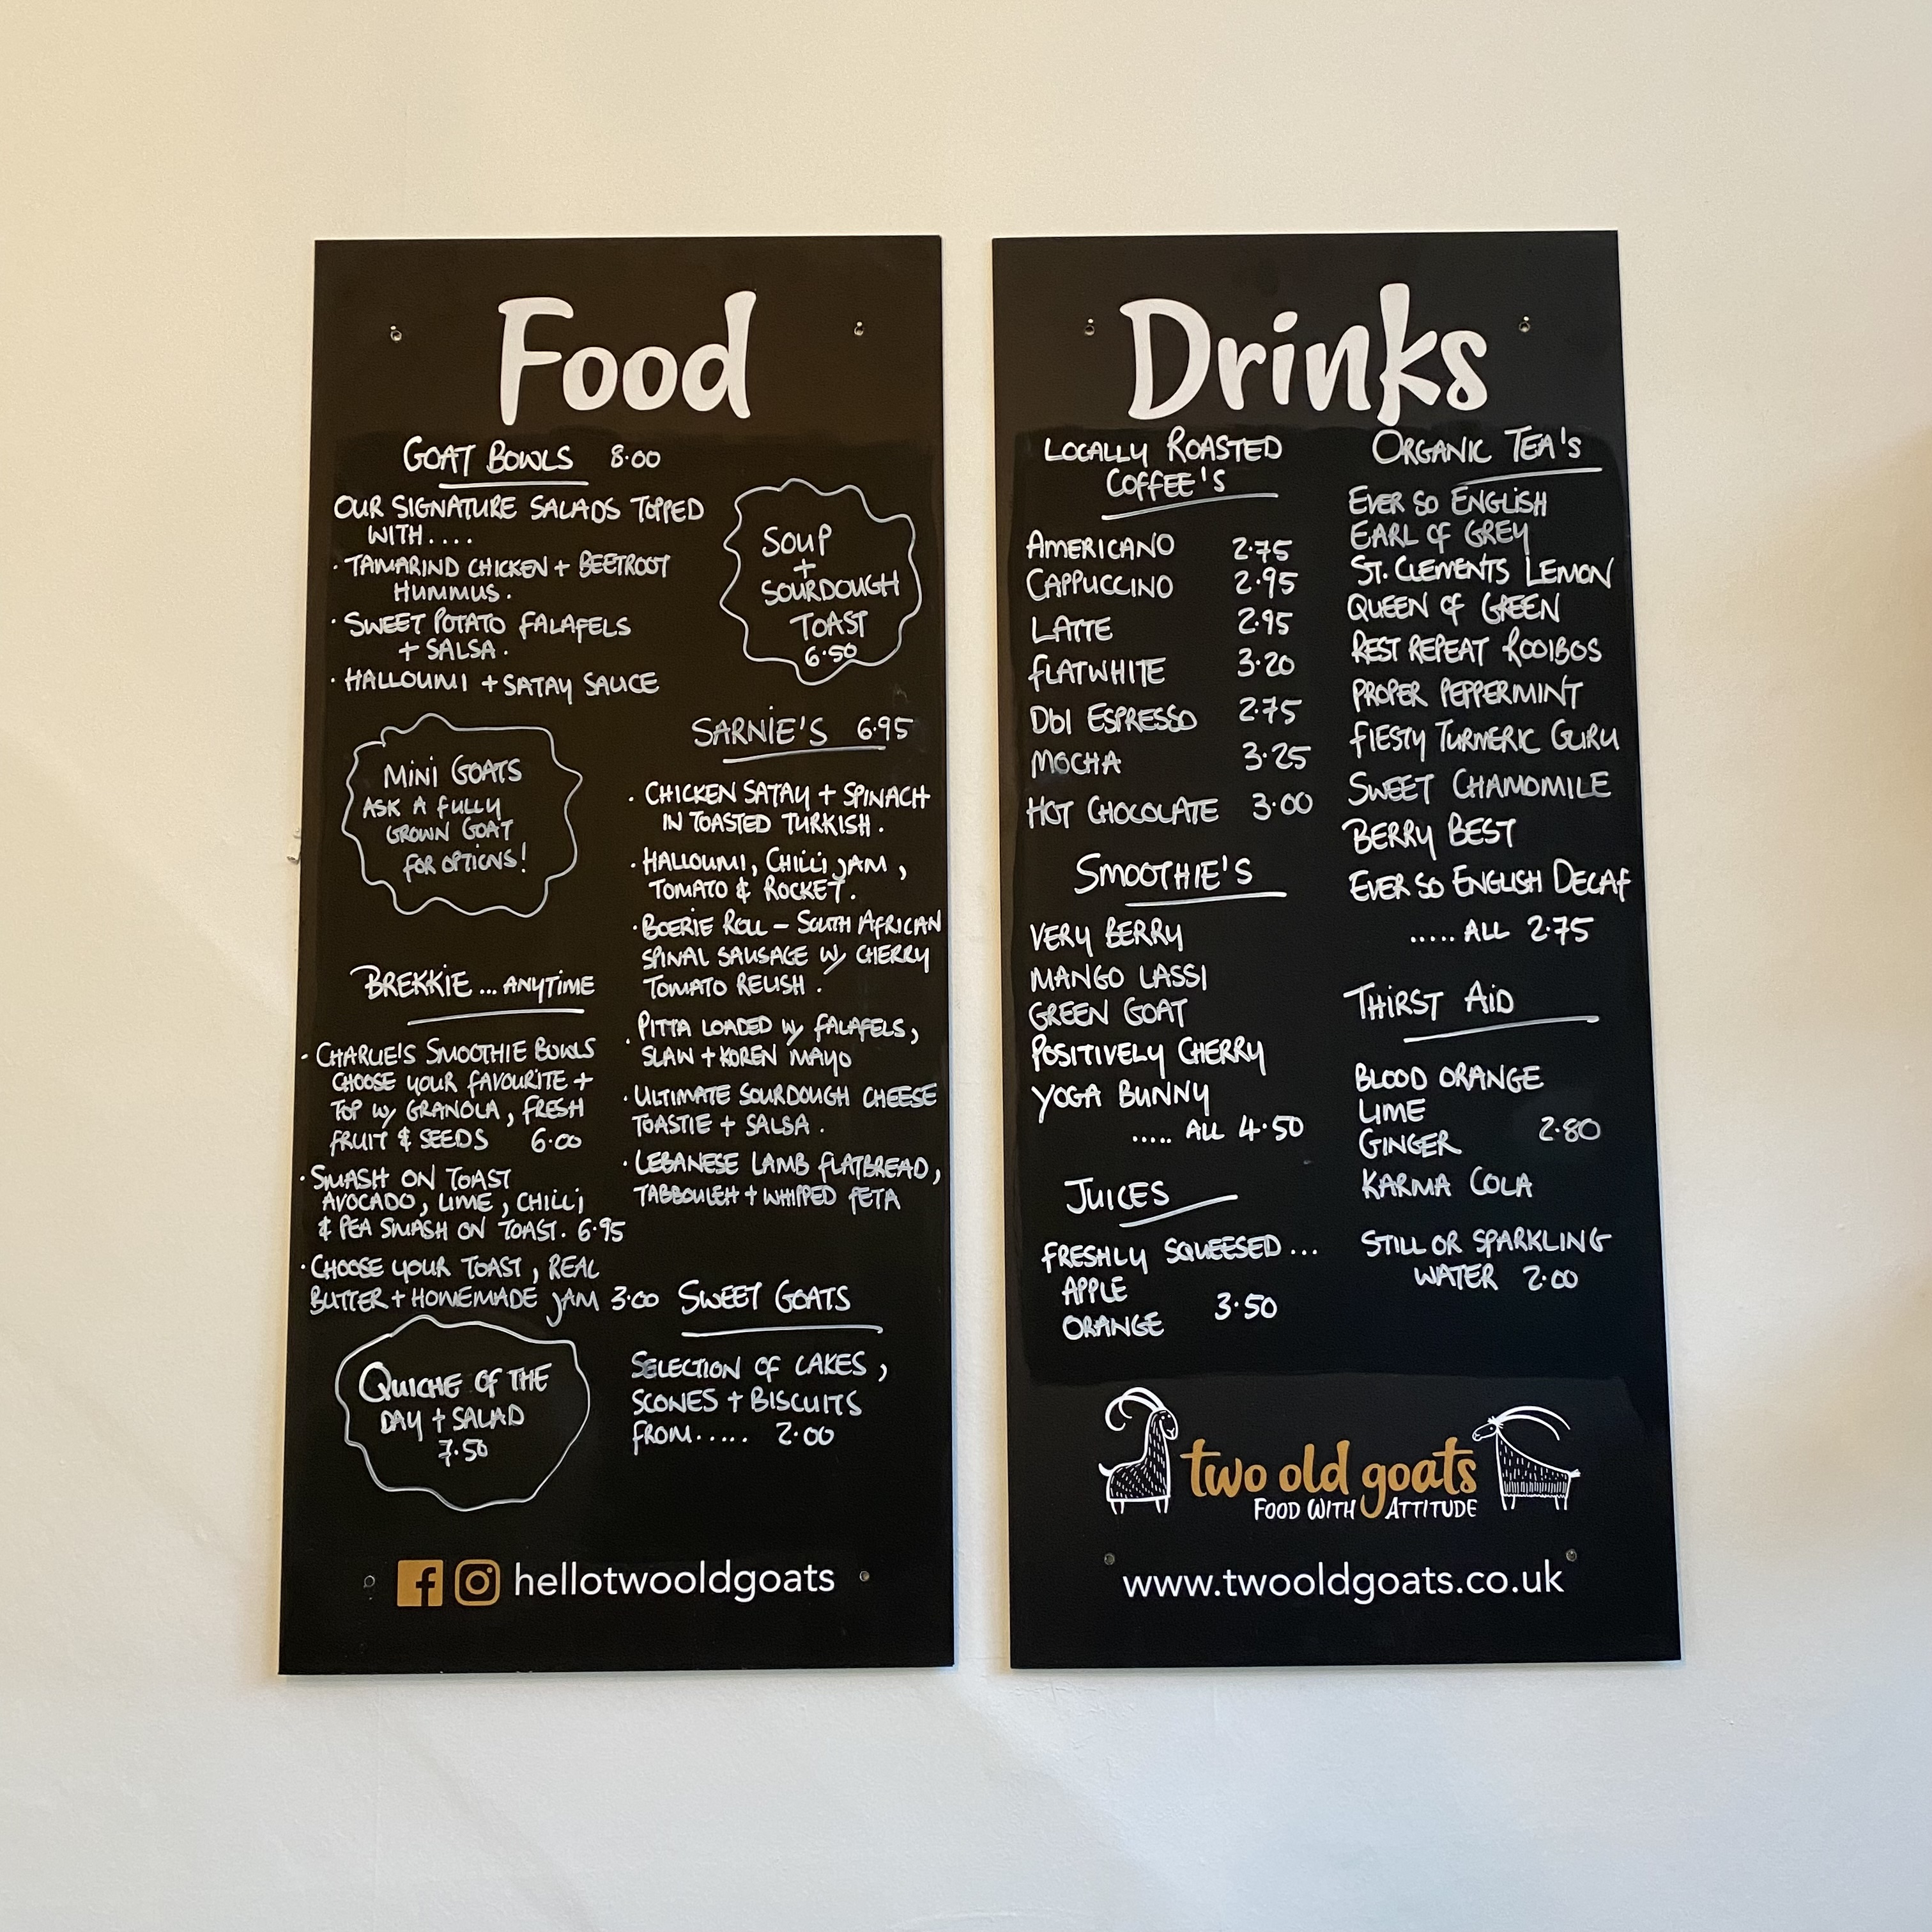 Food
GOAT BOWLS 8.00
OUR SIGNATURE SALADS TOPPED
WITH....
· TAMARIND CHICKEN + BEETROOT
HUMMUS.
· SWEET POTATO FALAFELS
+ SALSA.
· HALLOUMI + SATAY SAUCE
SOUP
+
SOURDOUGH
TOAST
6.50
MINI GOATS
ASK A FULLY
GROWN GOAT
FOR OPTIONS!
SARNIE'S 6.95
· CHICKEN SATAY + SPINACH
IN TOASTED TURKISH.
· HALLOUMI, CHILLI JAM,
TOMATO & ROCKET.
· BOERIE ROLL – SOUTH AFRICAN
SPINAL SAUSAGE W/ CHERRY
TOMATO RELISH.
· PITTA LOADED W/ FALAFELS,
SLAW + KOREN MAYO
· ULTIMATE SOURDOUGH CHEESE
TOASTIE + SALSA.
· LEBANESE LAMB FLATBREAD,
TABBOULEH + WHIPPED FETA
BREKKIE... ANYTIME
· CHARLIE'S SMOOTHIE BOWLS
CHOOSE YOUR FAVOURITE +
TOP W/ GRANOLA, FRESH
FRUIT & SEEDS 6.00
· SMASH ON TOAST
AVOCADO, LIME, CHILLI
& PEA SMASH ON TOAST. 6.95
· CHOOSE YOUR TOAST, REAL
BUTTER + HOMEMADE JAM 3.00
QUICHE OF THE
DAY + SALAD
7.50
SWEET GOATS
SELECTION OF CAKES,
SCONES + BISCUITS
FROM..... 2.00
hellotwooldgoats
Drinks
LOCALLY ROASTED
COFFEE'S
AMERICANO 2.75
CAPPUCCINO 2.95
LATTE 2.95
FLATWHITE 3.20
Dbl ESPRESSO 2.75
MOCHA 3.25
HOT CHOCOLATE 3.00
SMOOTHIE'S
VERY BERRY
MANGO LASSI
GREEN GOAT
POSITIVELY CHERRY
YOGA BUNNY
..... ALL 4.50
JUICES
FRESHLY SQUEESED...
APPLE
ORANGE 3.50
ORGANIC TEA'S
EVER SO ENGLISH
EARL OF GREY
ST. CLEMENTS LEMON
QUEEN OF GREEN
REST REPEAT ROOIBOS
PROPER PEPPERMINT
FIESTY TURMERIC GURU
SWEET CHAMOMILE
BERRY BEST
EVER SO ENGLISH DECAF
..... ALL 2.75
THIRST AID
BLOOD ORANGE
LIME
GINGER 2.80
KARMA COLA
STILL OR SPARKLING
WATER 2.00
two old goats
FOOD WITH ATTITUDE
www.twooldgoats.co.uk